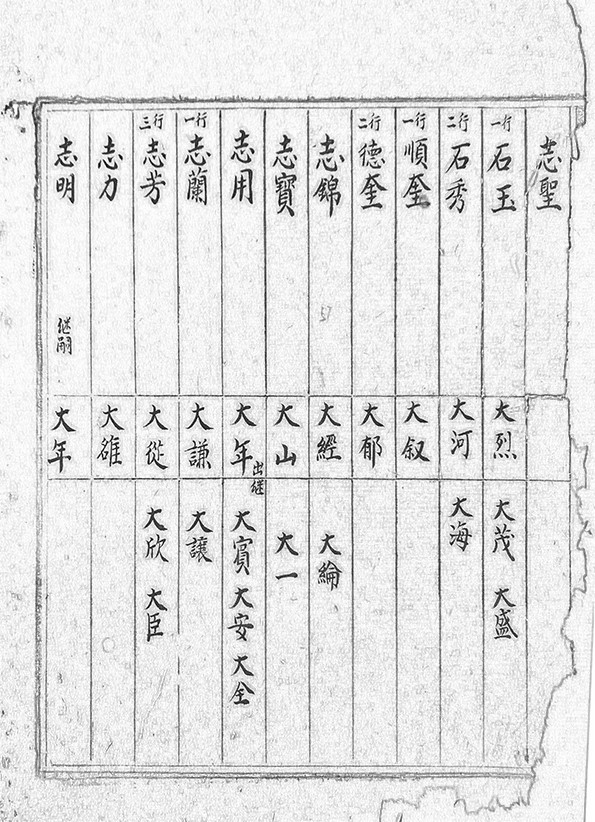 志聖
一行 石玉 大烈 大茂 大盛
二行 石秀 大河 大海
一行 順奎 大叙
二行 德奎 大郁
志錦 大經 大綸
志寶 大山 大一
志用 大年 出継 大賓 大安 大全
一行 志蘭 大謙 大讓
三行 志芳 大從 大欣 大臣
志力 大雄
志明 継嗣 大年